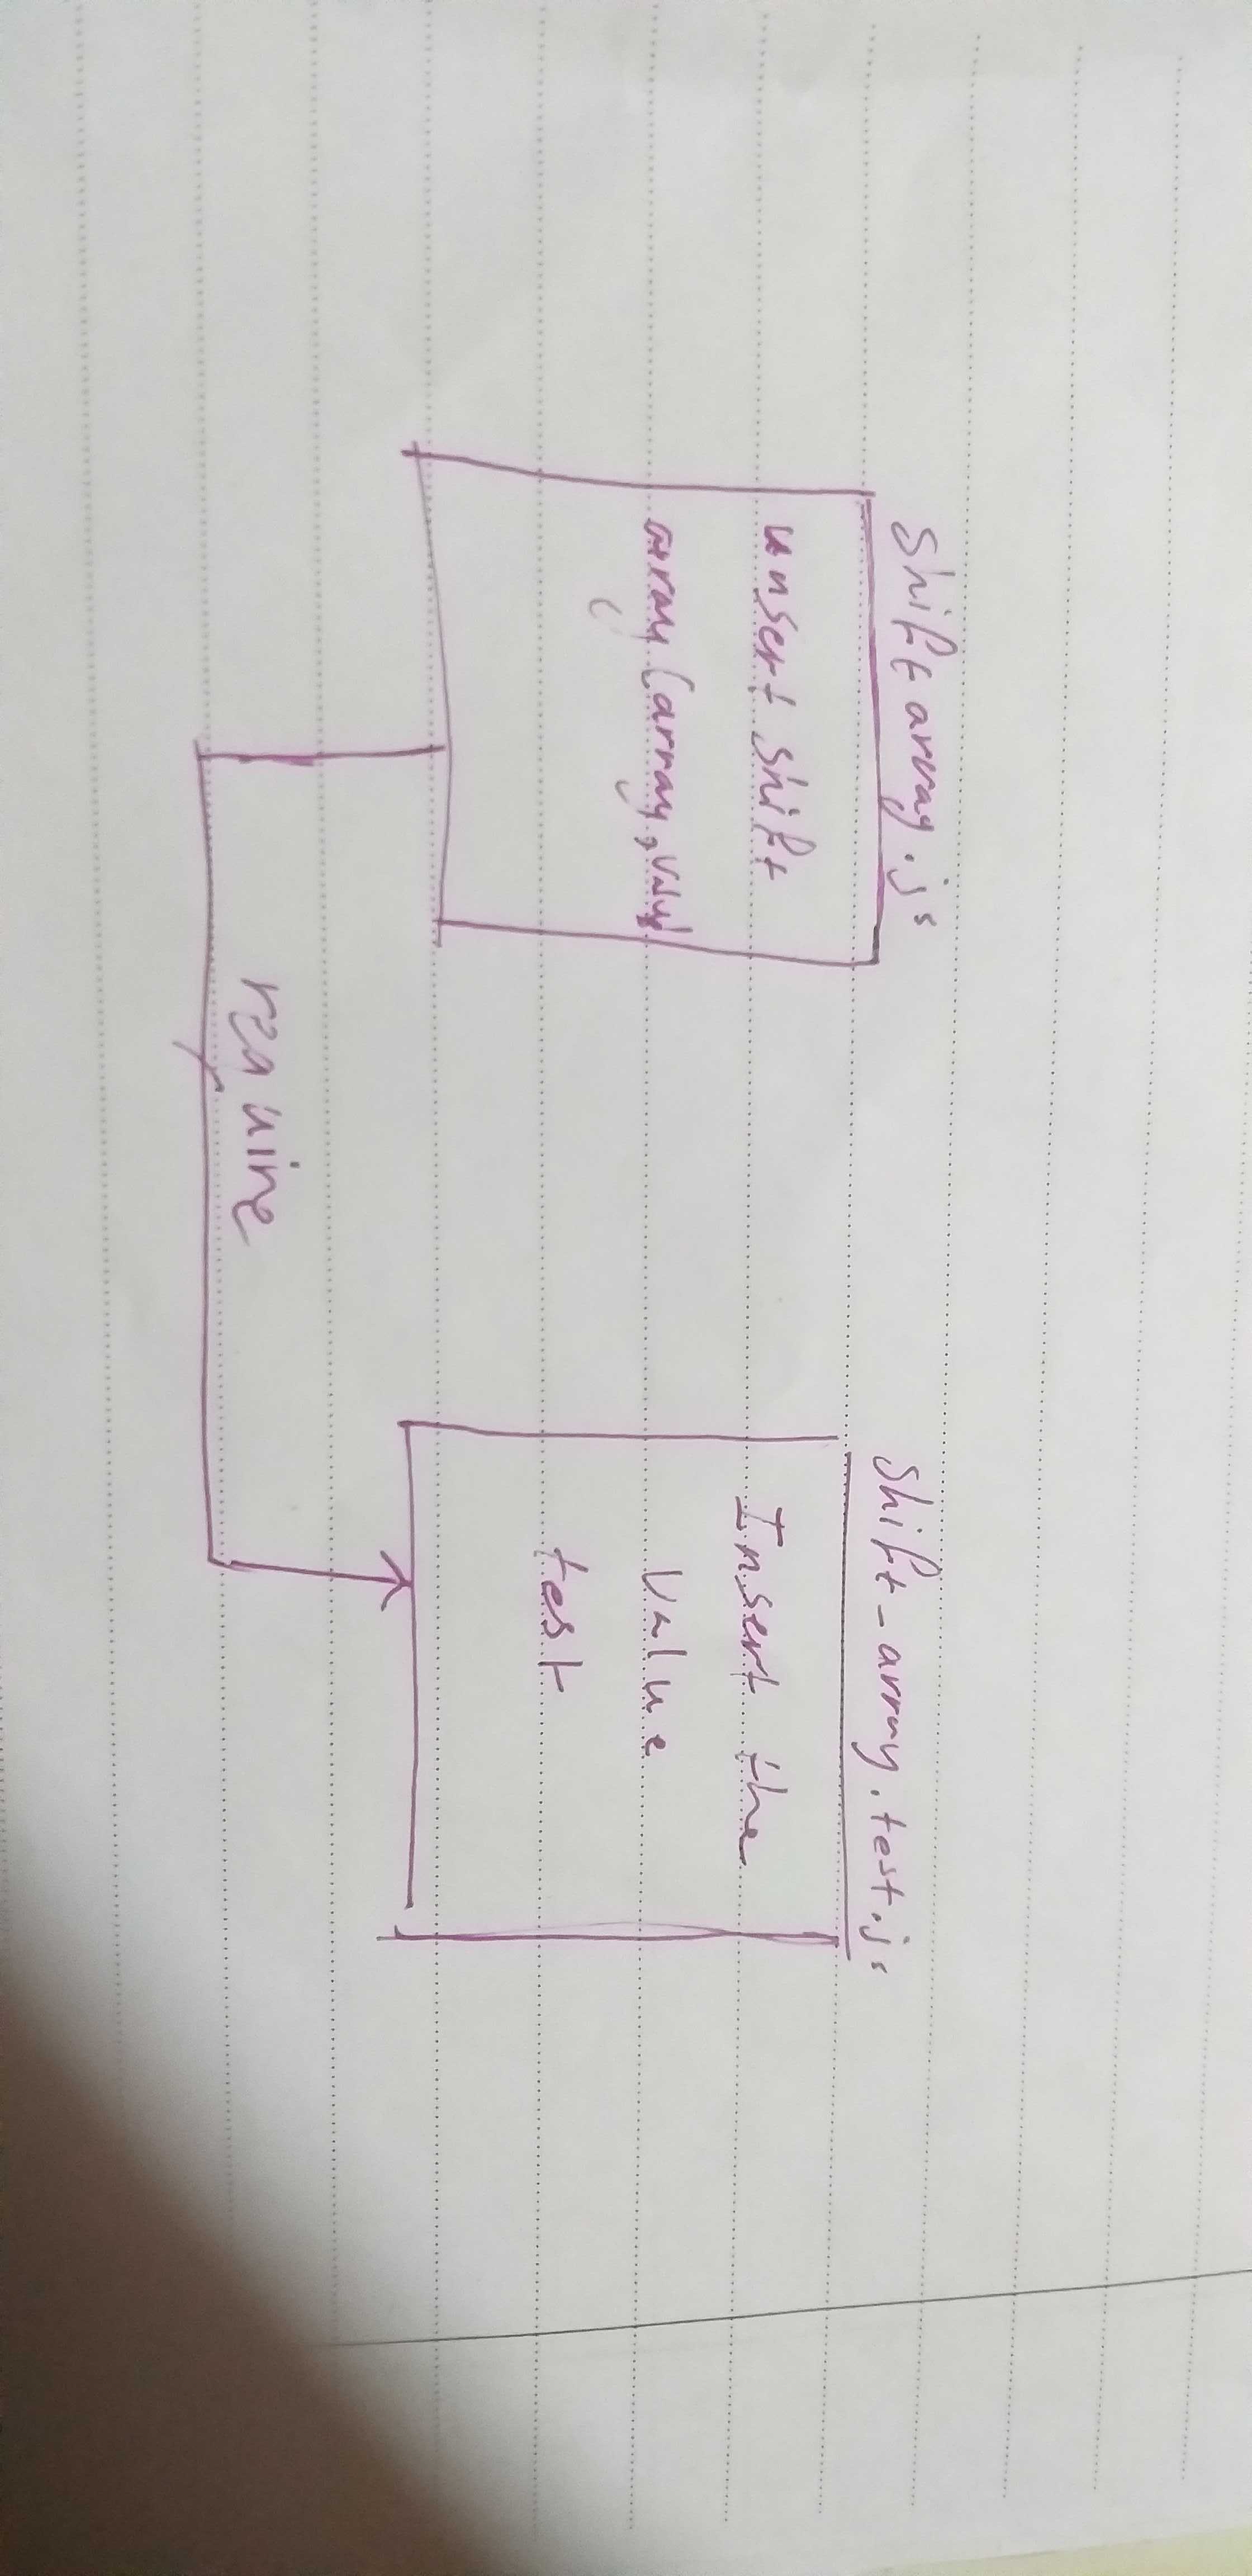 shift array.js
unsert shift
array (array, value)
shift-array.test.js
Insert the
value
test
require